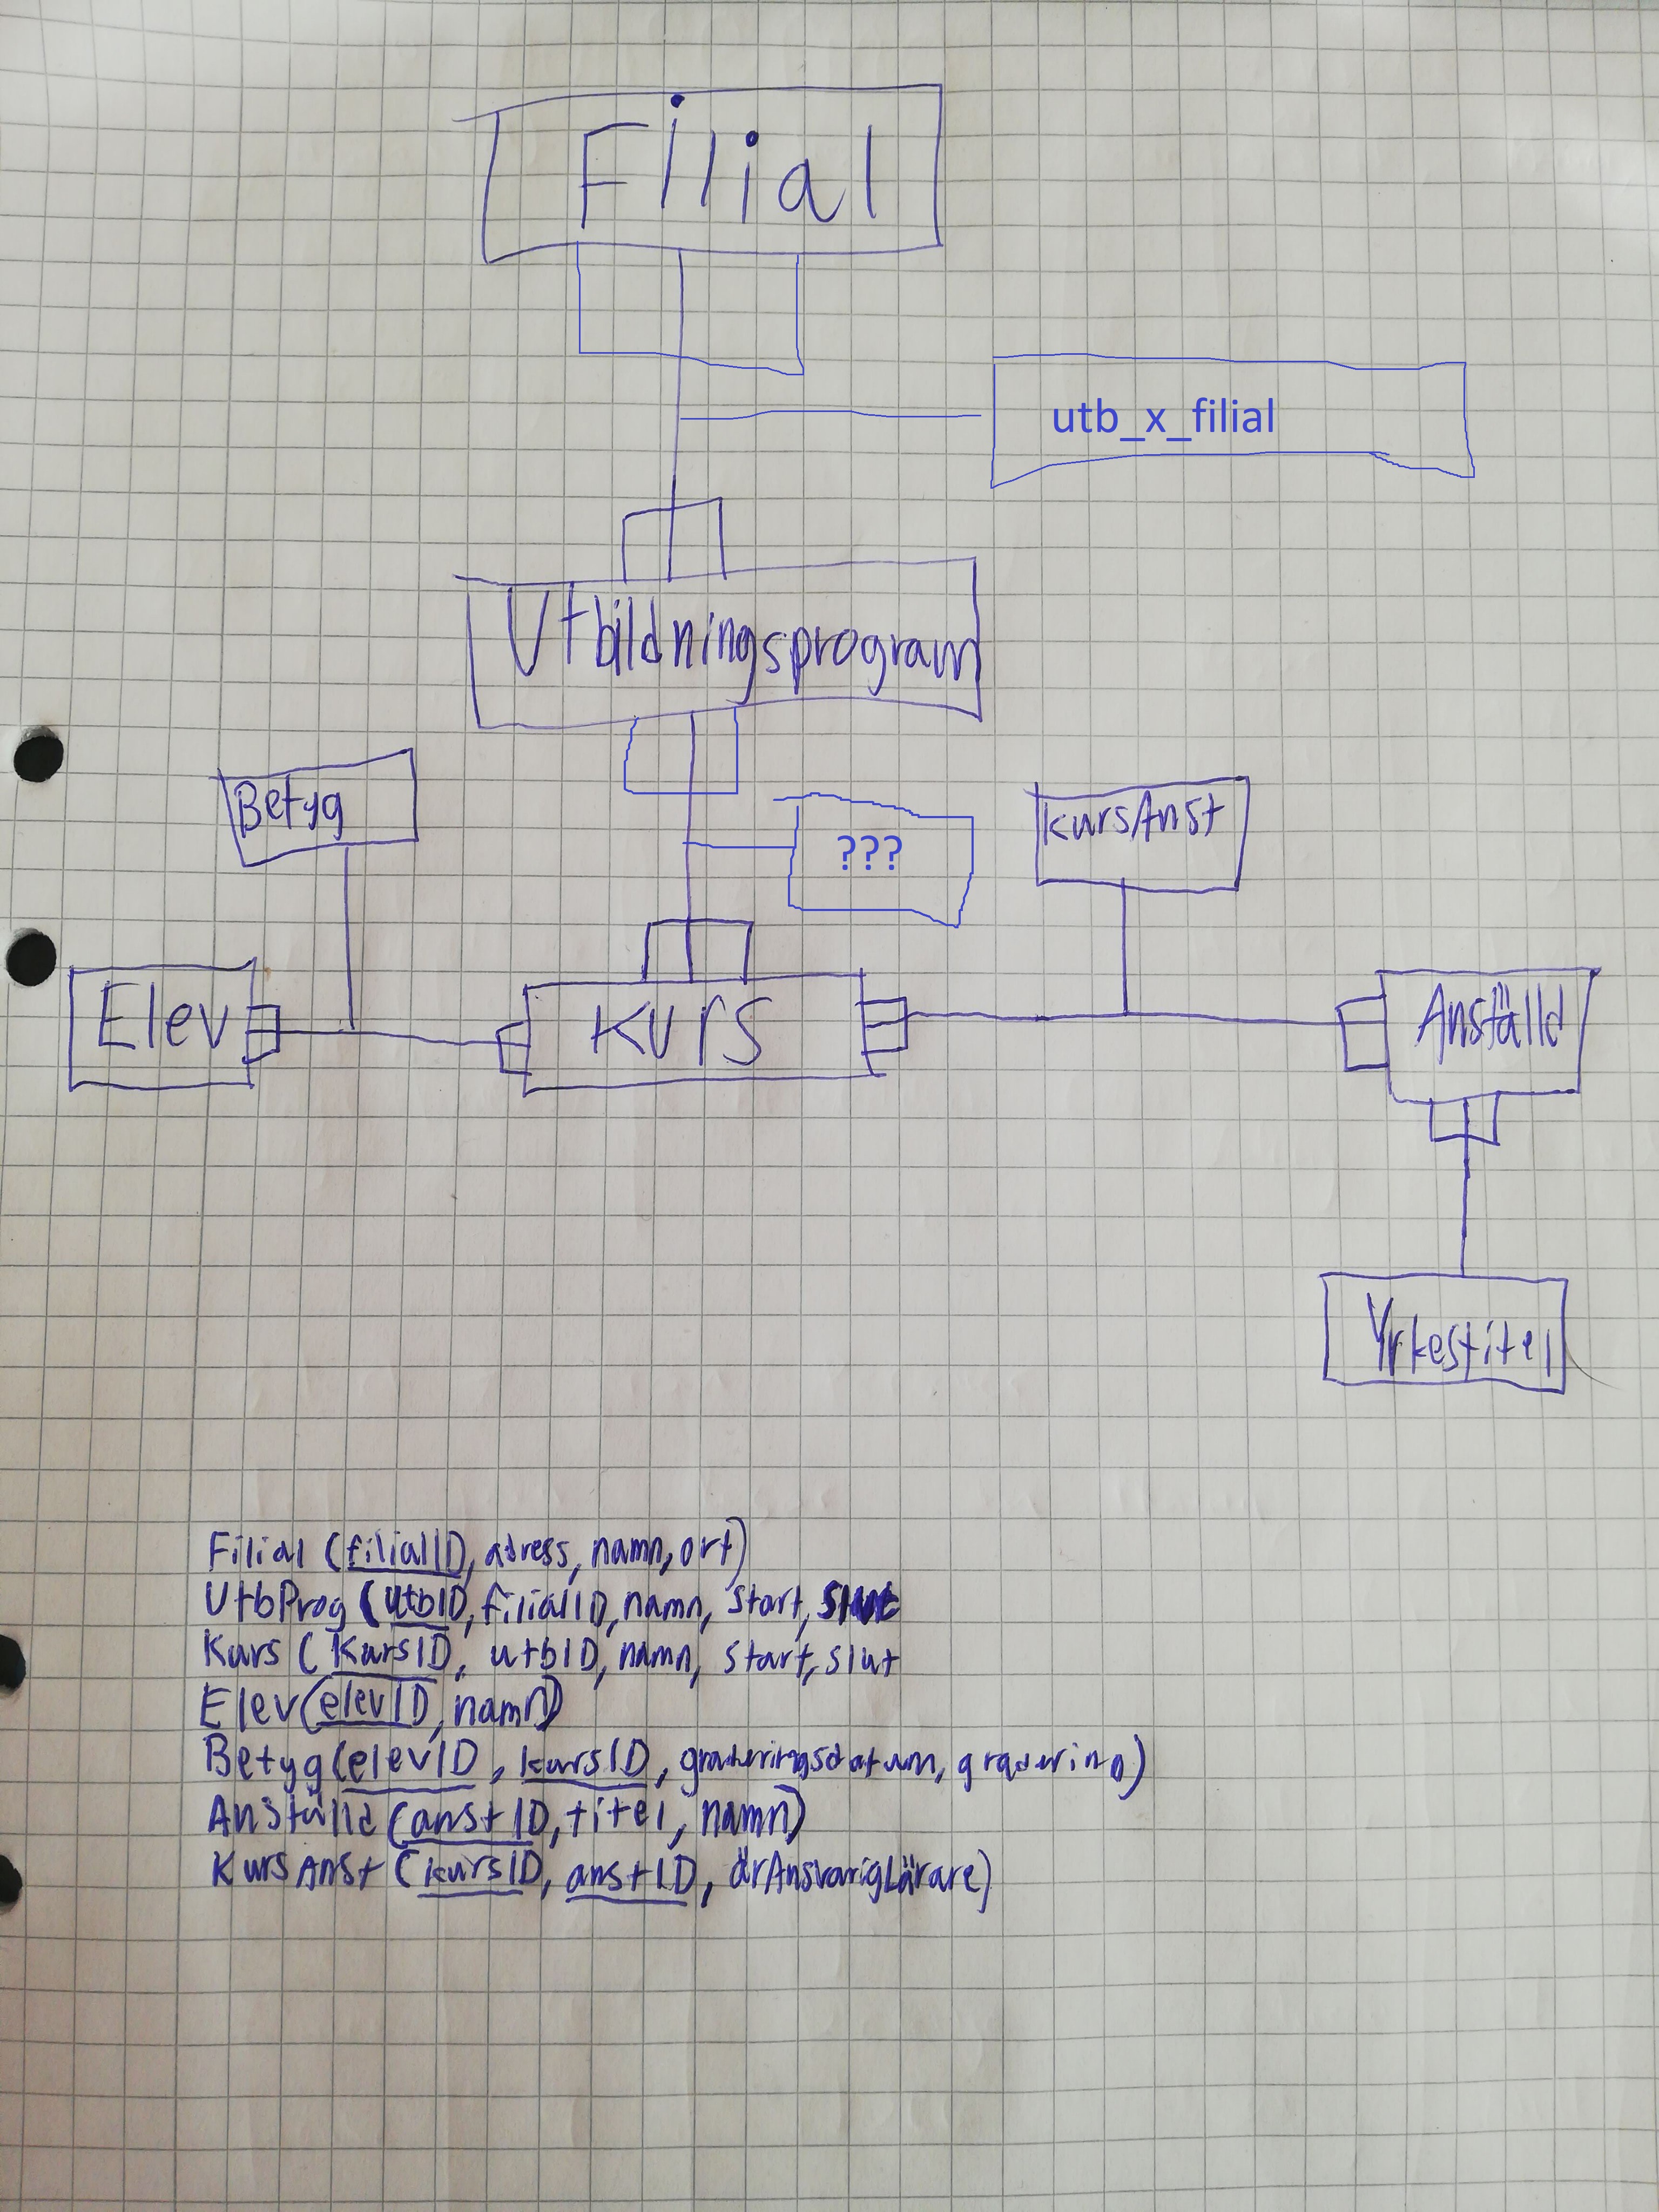 Filial
utb_x_filial
Utbildningsprogram
Betyg
kursAnst
???
Elev
Kurs
Anställd
Yrkestitel
Filial (filialID, adress, namn, ort)
UtbProg (utbID, filialID, namn, start, slut
Kurs (KursID, utbID, namn, start, slut
Elev (elevID, namn)
Betyg (elevID, kursID, graderingsdatum, gradering)
Anställd (anstID, titel, namn)
KursAnst (kursID, anstID, ärAnsvarigLärare)